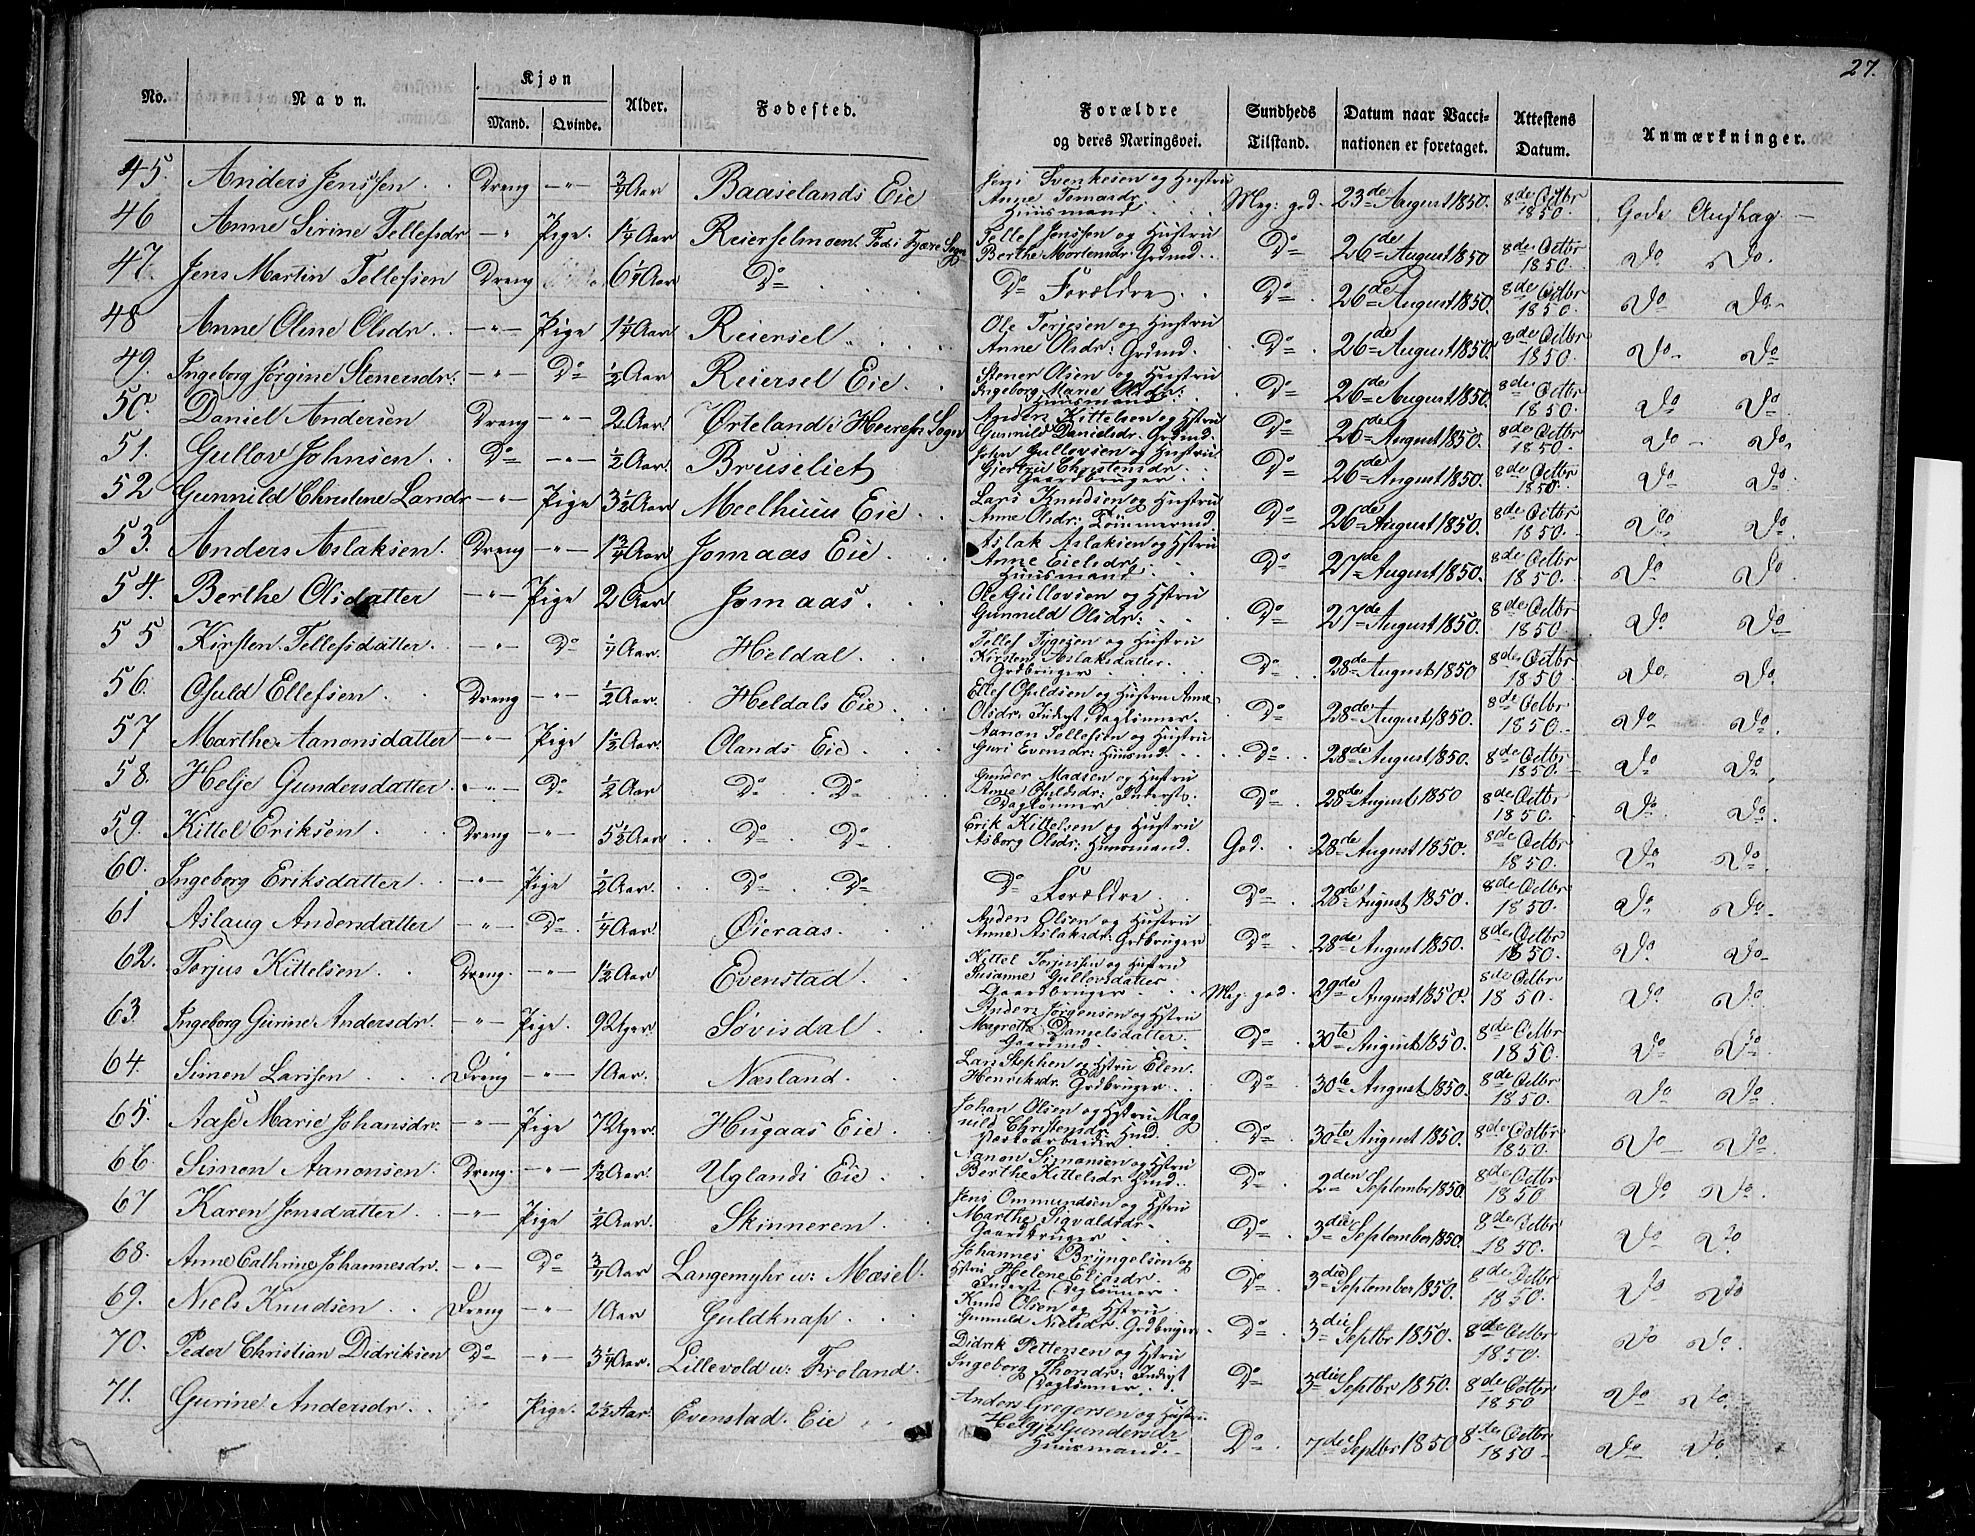 27.
No. Navn. Kjøn Mand. Qvinde. Alder. Fødested. Forældre og deres Næringsvei. Sundheds Tilstand. Datum naar Vaccinationen er foretaget. Attestens Datum. Anmærkninger.
45. Anders Jenssen. Dreng —"— 3/4 Aar Baaselands Eie Jens Svenkesen og Hustru Anne Tomasdr. Huusmand Meg: god. 23de August 1850. 8de Octbr 1850. Gode Anslag —
46 Anne Sirine Tellefsdr —" Pige. 1 1/4 Aar Reierselmoen Født i Fjære Sogn Tellef Jenssen og Hustru Berthe Mortensdr. Grdmd. Do 26de August 1850 8de Octbr 1850. Do Do.
47. Jens Martin Tellefsen Dreng 6 1/4 Aar Do Do Forældre Do 26de August 1850. 8de Octbr 1850. Do Do
48 Anne Oline Olsdr. —"— Pige 1 1/4 Aar Reiersel Ole Terjesen og Hustru Anne Olsdr: Grdmd. Do 26de August 1850. 8de Octbr 1850. Do Do
49. Ingeborg Jørgine Stenersdr: —"— Do 1/2 Aar Reiersel Eie. Stener Olsen og Hustru Ingeborg Marie Olsdr: Huusmand Do 26de August 1850. 8de Octbr 1850. Do Do.
50. Daniel Andersen Dreng —"— 2 Aar Ørteland i Sogn Anders Kittelsen og Hstru Gunnild Danielsdr. Grdmd. Do 26de August 1850. 8de Octbr 1850. Do — Do.
51. Gullov Johnsen. Do —"— 1/2 Aar Bruseliet John Gullovsen og Hustru Gjertru Christensdr Gaardbruger. Do 26de August 1850. 8de Octbr 1850. Do Do
52 Gunnild Christene Larsdr —"— Pige 3 1/2 Aar Moelhuus Eie Lars Knudsen og Hustru Anne Olsdr: Tømmermd. Do 26de August 1850. 8de Octbr 1850. Do Do.
53. Anders Aslaksen. Dreng —"— 1 3/4 Aar Jomaas Eie. Aslak Aslaksen og Hstru Anne Eielsdr Huusmand Do 27de August 1850. 8de Octbr 1850. Do Do.
54. Berthe Olsdatter —"— Pige 2 Aar Jomaas. Ole Gullovsen og Hstru Gunnild Olsdr: Do 27de August 1850. 8de Octbr 1850 Do Do
55 Kirsten Tellefsdatter. —"— Do 1/4 Aar. Heldal. Tellef Tygesen og Hustru Kirsten Aslaksdatter. Grdbruger Do 28de August 1850. 8de Octbr 1850. Do. Do.
56. Osuld Ellefsen. Dreng —"— 1/2 Aar. Heldals Eie Ellef Osuldsen og Hustru Anne Olsdr. Inderst, Daglønner. Do 28de August 1850. 8de Octbr 1850. Do Do.
57 Marthe Aanonsdatter —"— Pige 1 1/2 Aar. Olands Eie Aanon Tellefsen og Hustru Guri Evensdr. Huusmd. Do 28de August 1850. 8de Octbr 1850. Do Do.
58. Helje Gundersdatter. —"— Do 1/2 Aar Do Do Gunder Madsen og Hustru Anne Osuldsdr: Inderst, Daglønner Do 28de August 1850 8de Octbr 1850. Do Do.
59. Kittel Eriksen. Dreng —"— 5 1/2 Aar Do Do. Erik Kittelsen og Hustru Asborg Olsdr: Huusmand. God. 28de August 1850. 8de Octbr 1850. Do Do
60. Ingeborg Eriksdatter. —"— Pige 1/2 Aar. Do Do Do Forældre Do 28de August 1850. 8de Octbr 1850. Do Do
61 Aslaug Andersdatter —"— Do. 1/4 Aar. Øieraas. Anders Olsen og Hustru Anne Aslaksdr: Grdbruger Do 28de August 1850. 8de Octbr 1850. Do Do
62. Torjus Kittelsen. Dreng. —"— 1 1/2 Aar Evenstad. Kittel Torjussen og Hustru Susanne Gullovsdatter Gaardbruger Meg. god. 29de August 1850. 8de Octbr 1850. Do Do
63 Ingeborg Gurine Andersdr. —"— Pige. 9 Uger Søvisdal. Anders Jørgensen og Hstru Magrethe Danielsdatter. Gaardmd. Do 30te August 1850. 8de Octbr 1850. Do Do
64. Simon Larssen Dreng —"— 1 Aar. Næsland. Lars Stephen. og Hstru Elen Henriksdr. Grdbruger Do 30te August 1850. 8de Octbr 1850. Do Do.
65. Aase Marie Johansdr: —"— Pige 7 Uger. Hugaas Eie. Johan Olsen og Hstru Magnild Christensdr. Hmd. Do 30te August 1850. 8de Octbr 1850. Do Do
66. Simon Aanonsen. Dreng. —"— 1 1/2 Aar. Uglands Eie. Aanon Simonsen og Hstru Berthe Kittelsdr Hmd. Do 2den Septembr 1850. 8de Octbr 1850 Do Do.
67 Karen Jensdatter. —"— Pige 1/2 Aar. Skinneren. Jens Ommundsen og Hstru Marthe Sigvaldsdr. Gaardbruger Do 3die September 1850. 8de Octbr 1850. Do Do
68. Anne Cathrine Johannesdr. —"— Do 3/4 Aar Langemyhr u: Mæsel. Johannes Bryngelsen og Hstru Helene Eliasdr. Inderst, Dagløner. Do 3die September 1850. 8de Octbr 1850. Do Do
69. Niels Knudsen. Dreng —"— 1 Aar Guldknap. Knud Olsen og Hstru Gunnild Nielsdr. Grdbruger. Do. 3die Septbr 1850. 8de Octbr 1850. Do Do.
70. Peder Christian Didriksen Do —"— 3 1/4 Aar. Lillevold u: Froland. Didrik Pettersen og Hstru Ingeborg Thorsdr: Inderst Dagløner Do 3die Septbr 1850. 8de Octbr 1850 Do Do.
71. Gurine Andersdr. Pige. 2 1/2 Aar. Evenstad. Eie Anders Gregersen og Hustru Helgje Gundersdr Huusmand. Do. 7de Septbr 1850 8de Octbr 1850 Do Do